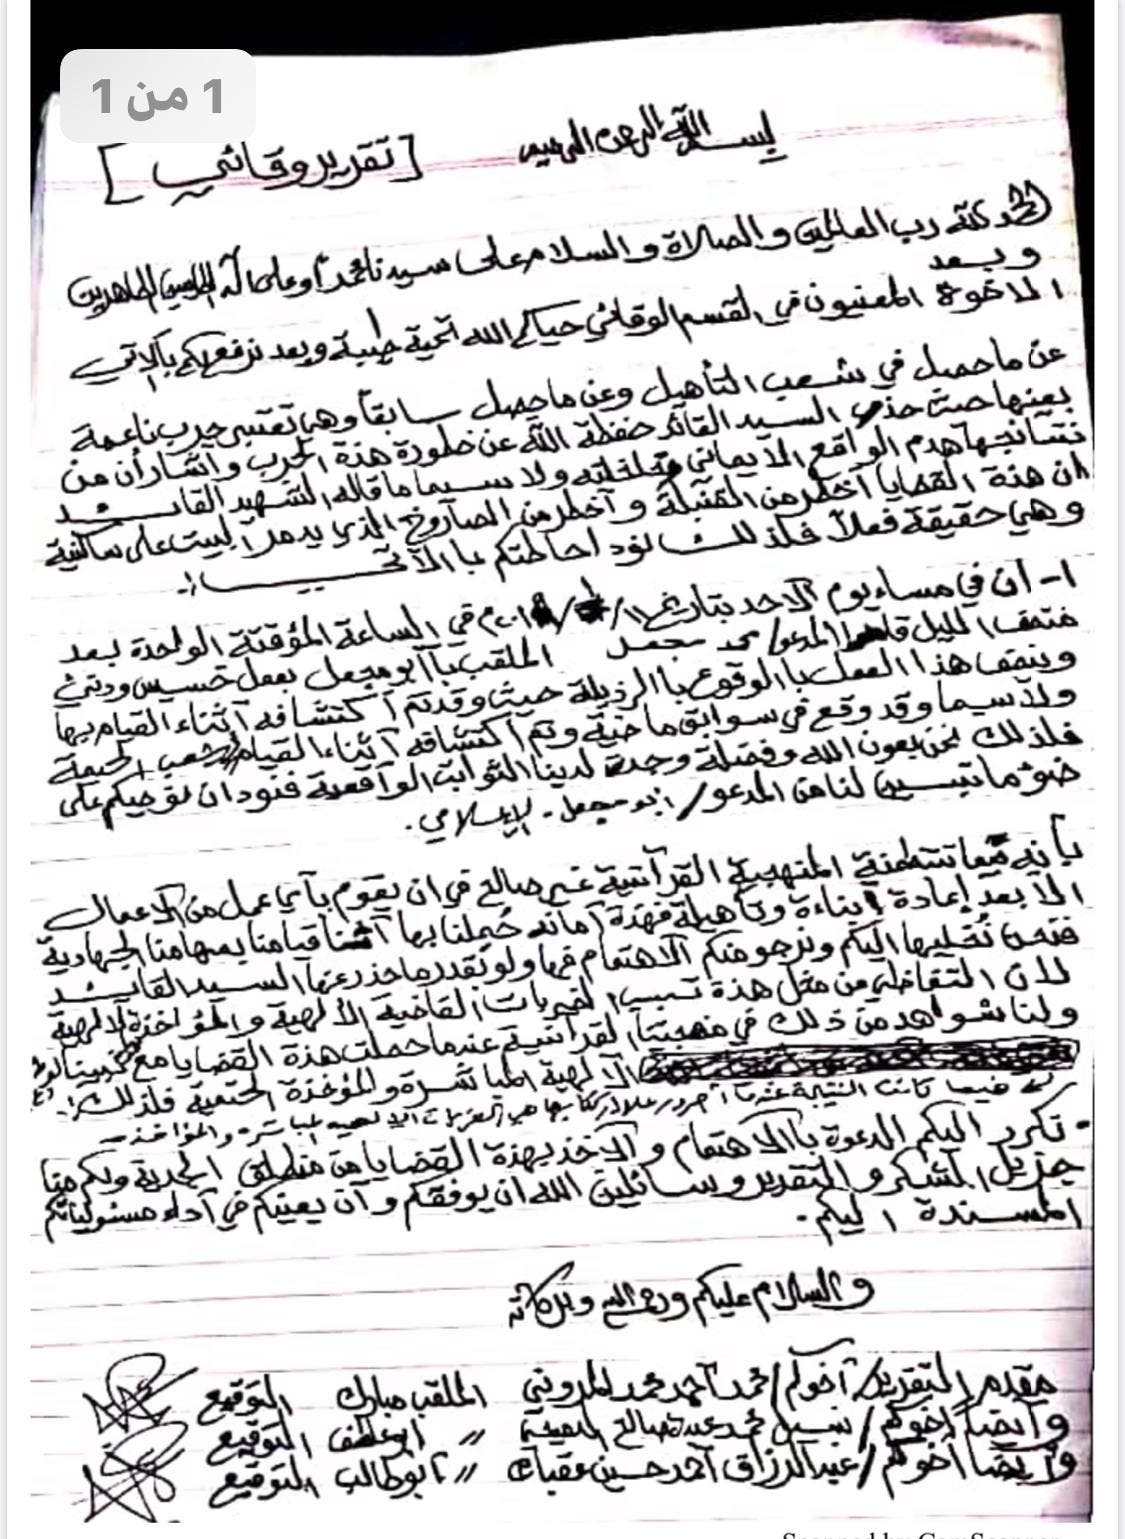 1 من 1
بسم الله الرحمن الرحيم [تقرير وقائي]
الحمد لله رب العالمين والصلاة والسلام على سيدنا محمد وعلى آله الطيبين الطاهرين
وبعد
الاخوة المعنيون في القسم الوقائي حياكم الله تحية طيبة وبعد نرفع لكم بالاتي
عن ما حصل في شعب التأهيل وعن ما حصل سابقاً وهي تعتبر حرب ناعمة
بعينها حيث حذر السيد القائد حفظة الله عن خطورة هذة الحرب واشار أن من
نتائجها هدم الواقع الايماني ولا سيما ما قاله الشهيد القائد
ان هذة القضايا أخطر من القنبلة وأخطر من الصاروخ الذي يدمر البيت على ساكنية
وهي حقيقة فعلاً فلذلك نود احاطتكم با الآتي
١- ان في مساء يوم الاحد بتاريخ في الساعة المؤقتة الواحدة بعد
منتصف الليل قام المدعو/ محمد مجمل الملقب با أبو مجمل بعمل خسيس ودنيئ
وينصف هذا العمل با الوقوع با الرذيلة حيث وقد تم أكتشافه أثناء القيام بها
ولا سيما وقد وقع في سوابق ماضية وتم أكتشافه أثناء القيام
فلذلك نحن بعون الله وفضلة وجدة لدينا الثوابت الواقعية فنود ان نوصيكم على
ضوء ما تبين لنا من المدعو/ ابو مجمل -
بأنه المنهجية القرآنية غير صالح في ان يقوم بأي عمل من الاعمال
الا بعد إعادة بناءة وتأهيلة فهذة أمانه حُملنا بها أثنا قيامنا بمهامنا الجهادية
فنحن نُخليها اليكم ونرجو منكم الاهتمام فيها ولو نقدر ما حذر عنها السيد القائد
لان التغاضي من مثل هذة تسبب الضربات القاضية الألهية والمؤاخذة الالهية
ولنا شواهد من ذلك في منهجيتنا القرآنية عندما حصلت هذة القضايا مع
الالهية المباشرة والمؤخذة الحتمية فلذلك:
كانت النتيجة عندما هي الضربات الالهية المباشرة والمؤاخذة
- نكرر اليكم الدعوة با الاهتمام والاخذ بهذة القضايا من منطلق الجدية ولكم منا
جزيل الشكر والتقدير وسائلين الله ان يوفقكم وأن يعينكم في أداء مسئولياتكم
المسندة اليكم.
والسلام عليكم ورحمة الله وبركاته
مقدم التقرير/ أخوكم/ محمد أحمد محمد المروني الملقب مبارك التوقيع
وأيضاً أخوكم/ نبيل محمد عبدة صالح " ابو عاطف التوقيع
وأيضاً أخوكم/ عبدالرزاق أحمد حسين عقبات " أبو طالب التوقيع